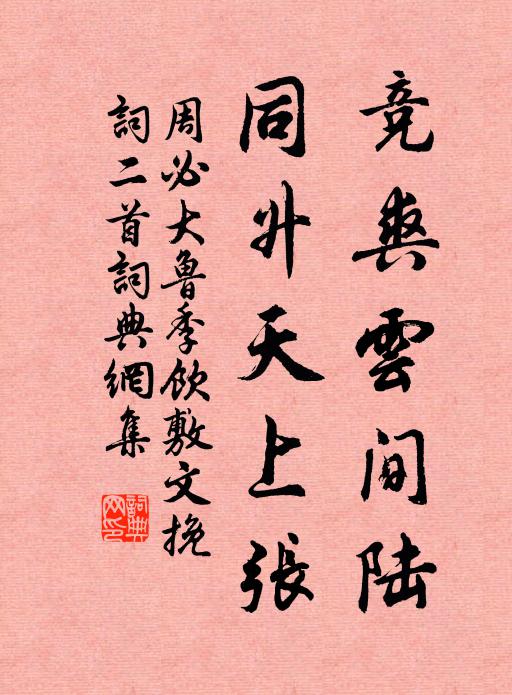 竞爽雲间陆
同升天上張
周必大魯季欽敷文挽
詞二首詞典網集
詞典
网印